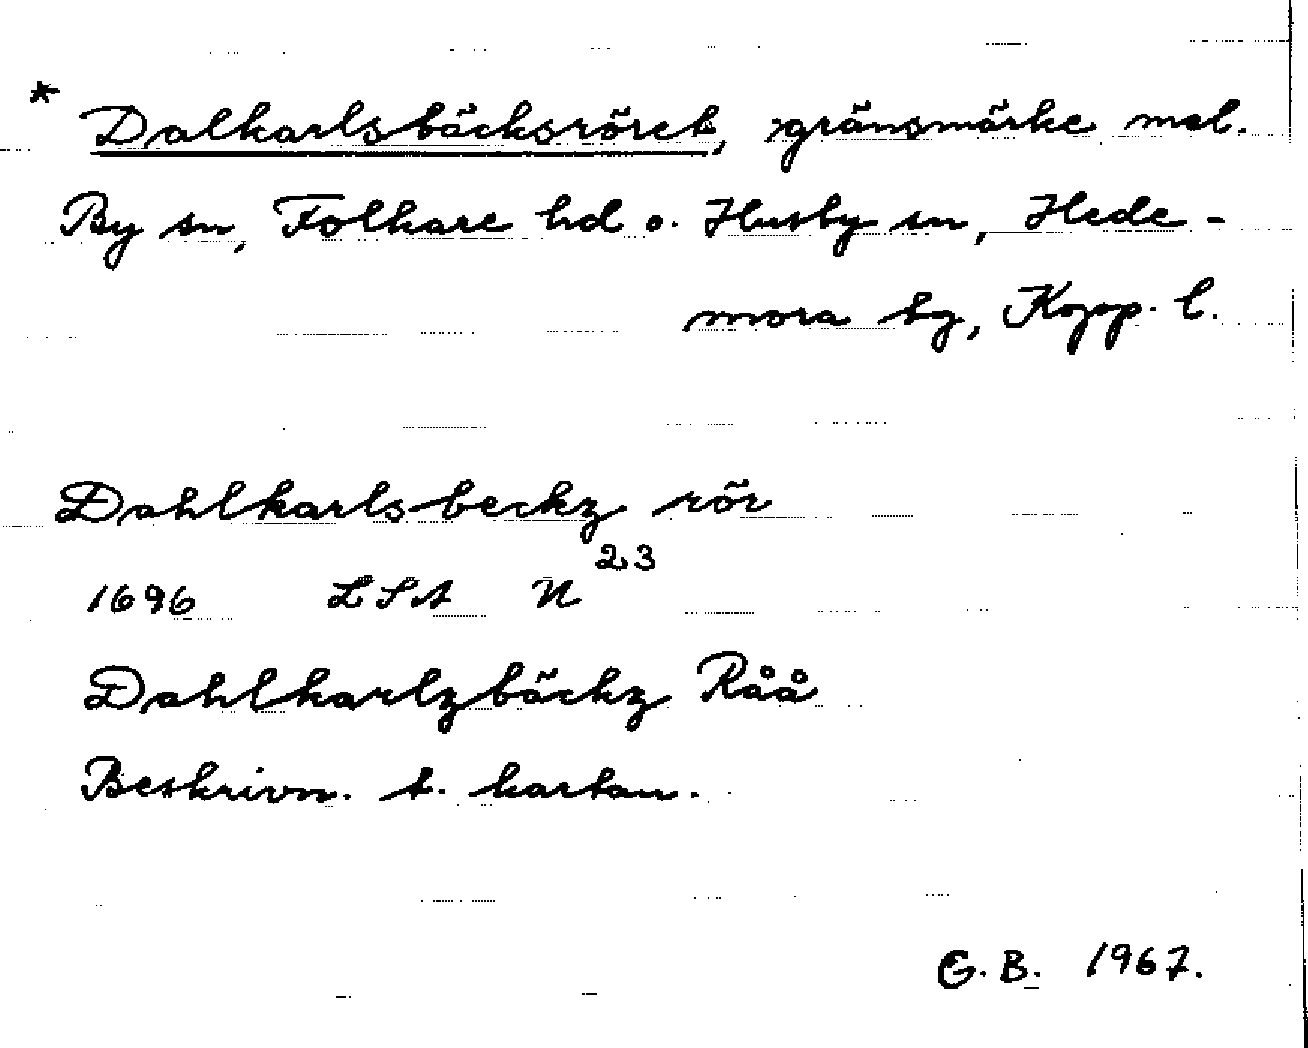 * Dalkarlsbäcksröret, gränsmärke mel.
By sn, Folkare hd o. Husby sn, Hede-
mora bg, Kopp. l.
Dahlkarlsbeckz rör
1696 LSA N 23
Dahlkarlzbäckz Råå
Beskrivn. t. kartan.
G.B. 1967.